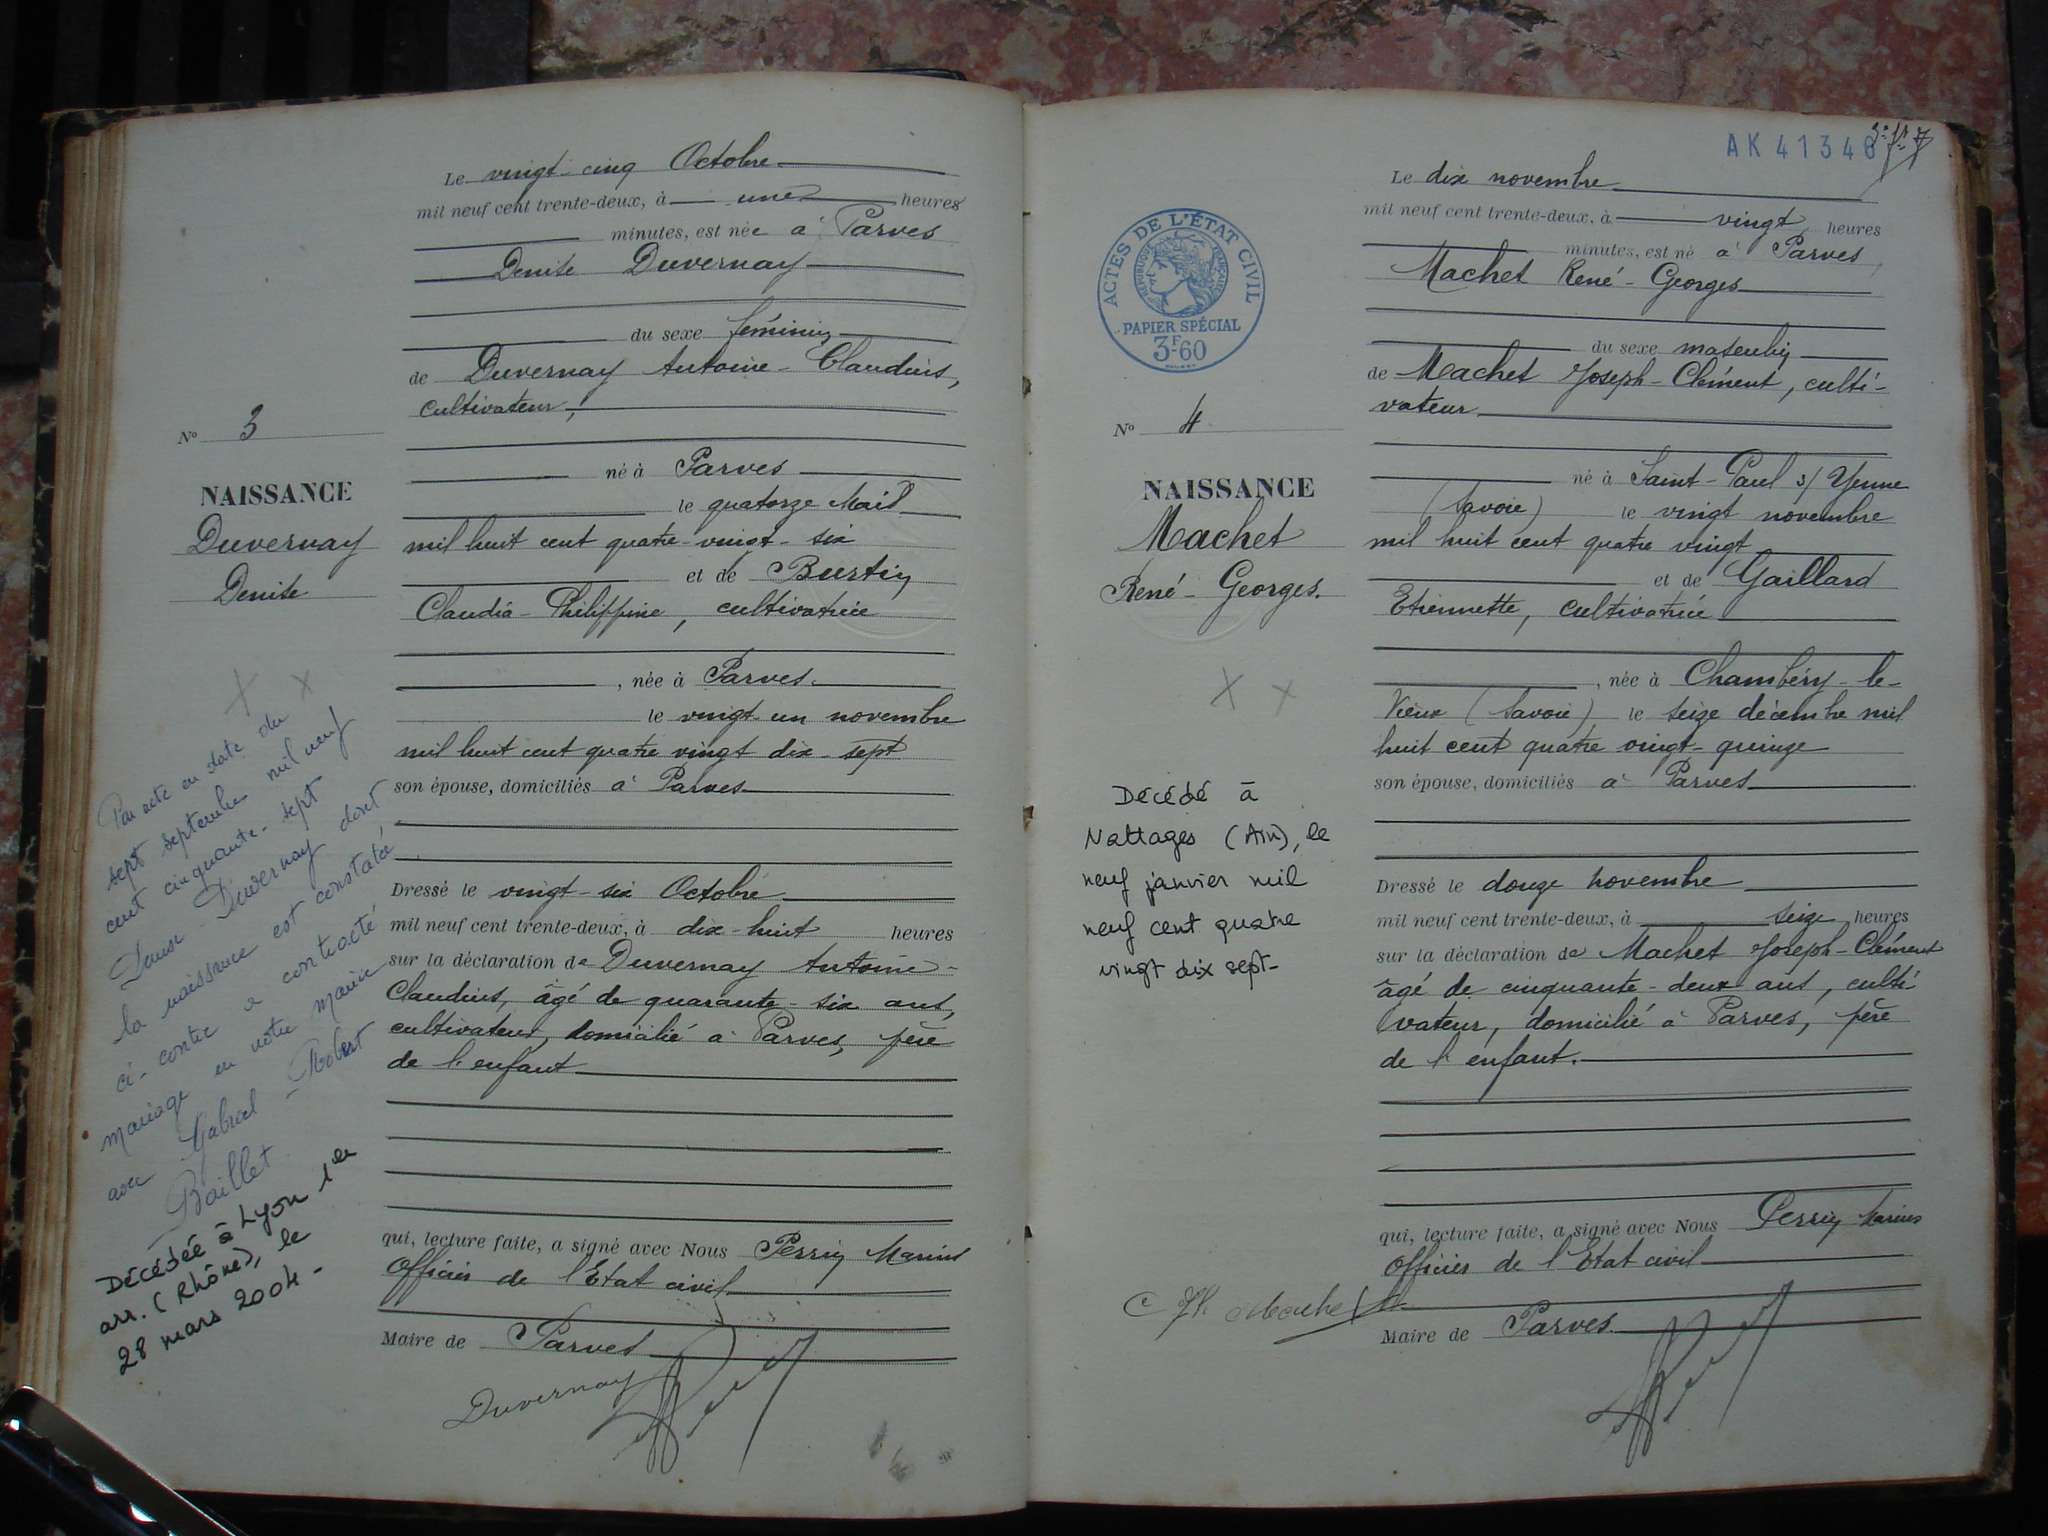 Le vingt-cinq Octobre
mil neuf cent trente-deux, à une heures
minutes, est née à Parves
Denise Duvernay
du sexe féminin
de Duvernay Antoine-Claudius,
cultivateur,
né à Parves
le quatorze Mai
mil huit cent quatre-vingt-six
et de Burtin
Claudia-Philippine, cultivatrice
, née à Parves.
le vingt-un novembre
mil huit cent quatre vingt dix-sept
son épouse, domiciliés à Parves
Dressé le vingt-six Octobre
mil neuf cent trente-deux, à dix-huit heures
sur la déclaration de Duvernay Antoine-
Claudius, âgé de quarante-six ans,
cultivateur, domicilié à Parves, père
de l'enfant
qui, lecture faite, a signé avec Nous Perrin Marius
Officier de l'Etat civil
Maire de Parves
Duvernay
No 3
NAISSANCE
Duvernay
Denise
Par acte en date du
sept septembre mil neuf
cent cinquante-sept
Denise Duvernay dont
la naissance est constatée
ci-contre a contracté
mariage en notre mairie
avec Gabriel-Robert
Baillet
Décédée à Lyon 1er
arr. (Rhône), le
28 mars 2004-
AK 41346
ACTES DE L'ÉTAT CIVIL
RÉPUBLIQUE FRANÇAISE
PAPIER SPÉCIAL
3F60
Le dix novembre
mil neuf cent trente-deux, à vingt heures
minutes, est né à Parves
Machet René-Georges
du sexe masculin
de Machet Joseph-Clément, culti-
vateur
né à Saint-Paul s/ Yenne
(Savoie) le vingt novembre
mil huit cent quatre vingt
et de Gaillard
Etiennette, cultivatrice
, née à Chambéry-le-
Vieux (Savoie) le seize décembre mil
huit cent quatre vingt-quinze
son épouse, domiciliés à Parves
Dressé le douze novembre
mil neuf cent trente-deux, à seize heures
sur la déclaration de Machet Joseph-Clément
âgé de cinquante-deux ans, culti-
vateur, domicilié à Parves, père
de l'enfant.
qui, lecture faite, a signé avec Nous Perrin Marius
Officier de l'Etat civil
Maire de Parves
No 4
NAISSANCE
Machet
René-Georges.
Décédé à
Nattages (Ain), le
neuf janvier mil
neuf cent quatre
vingt dix sept-
Machet